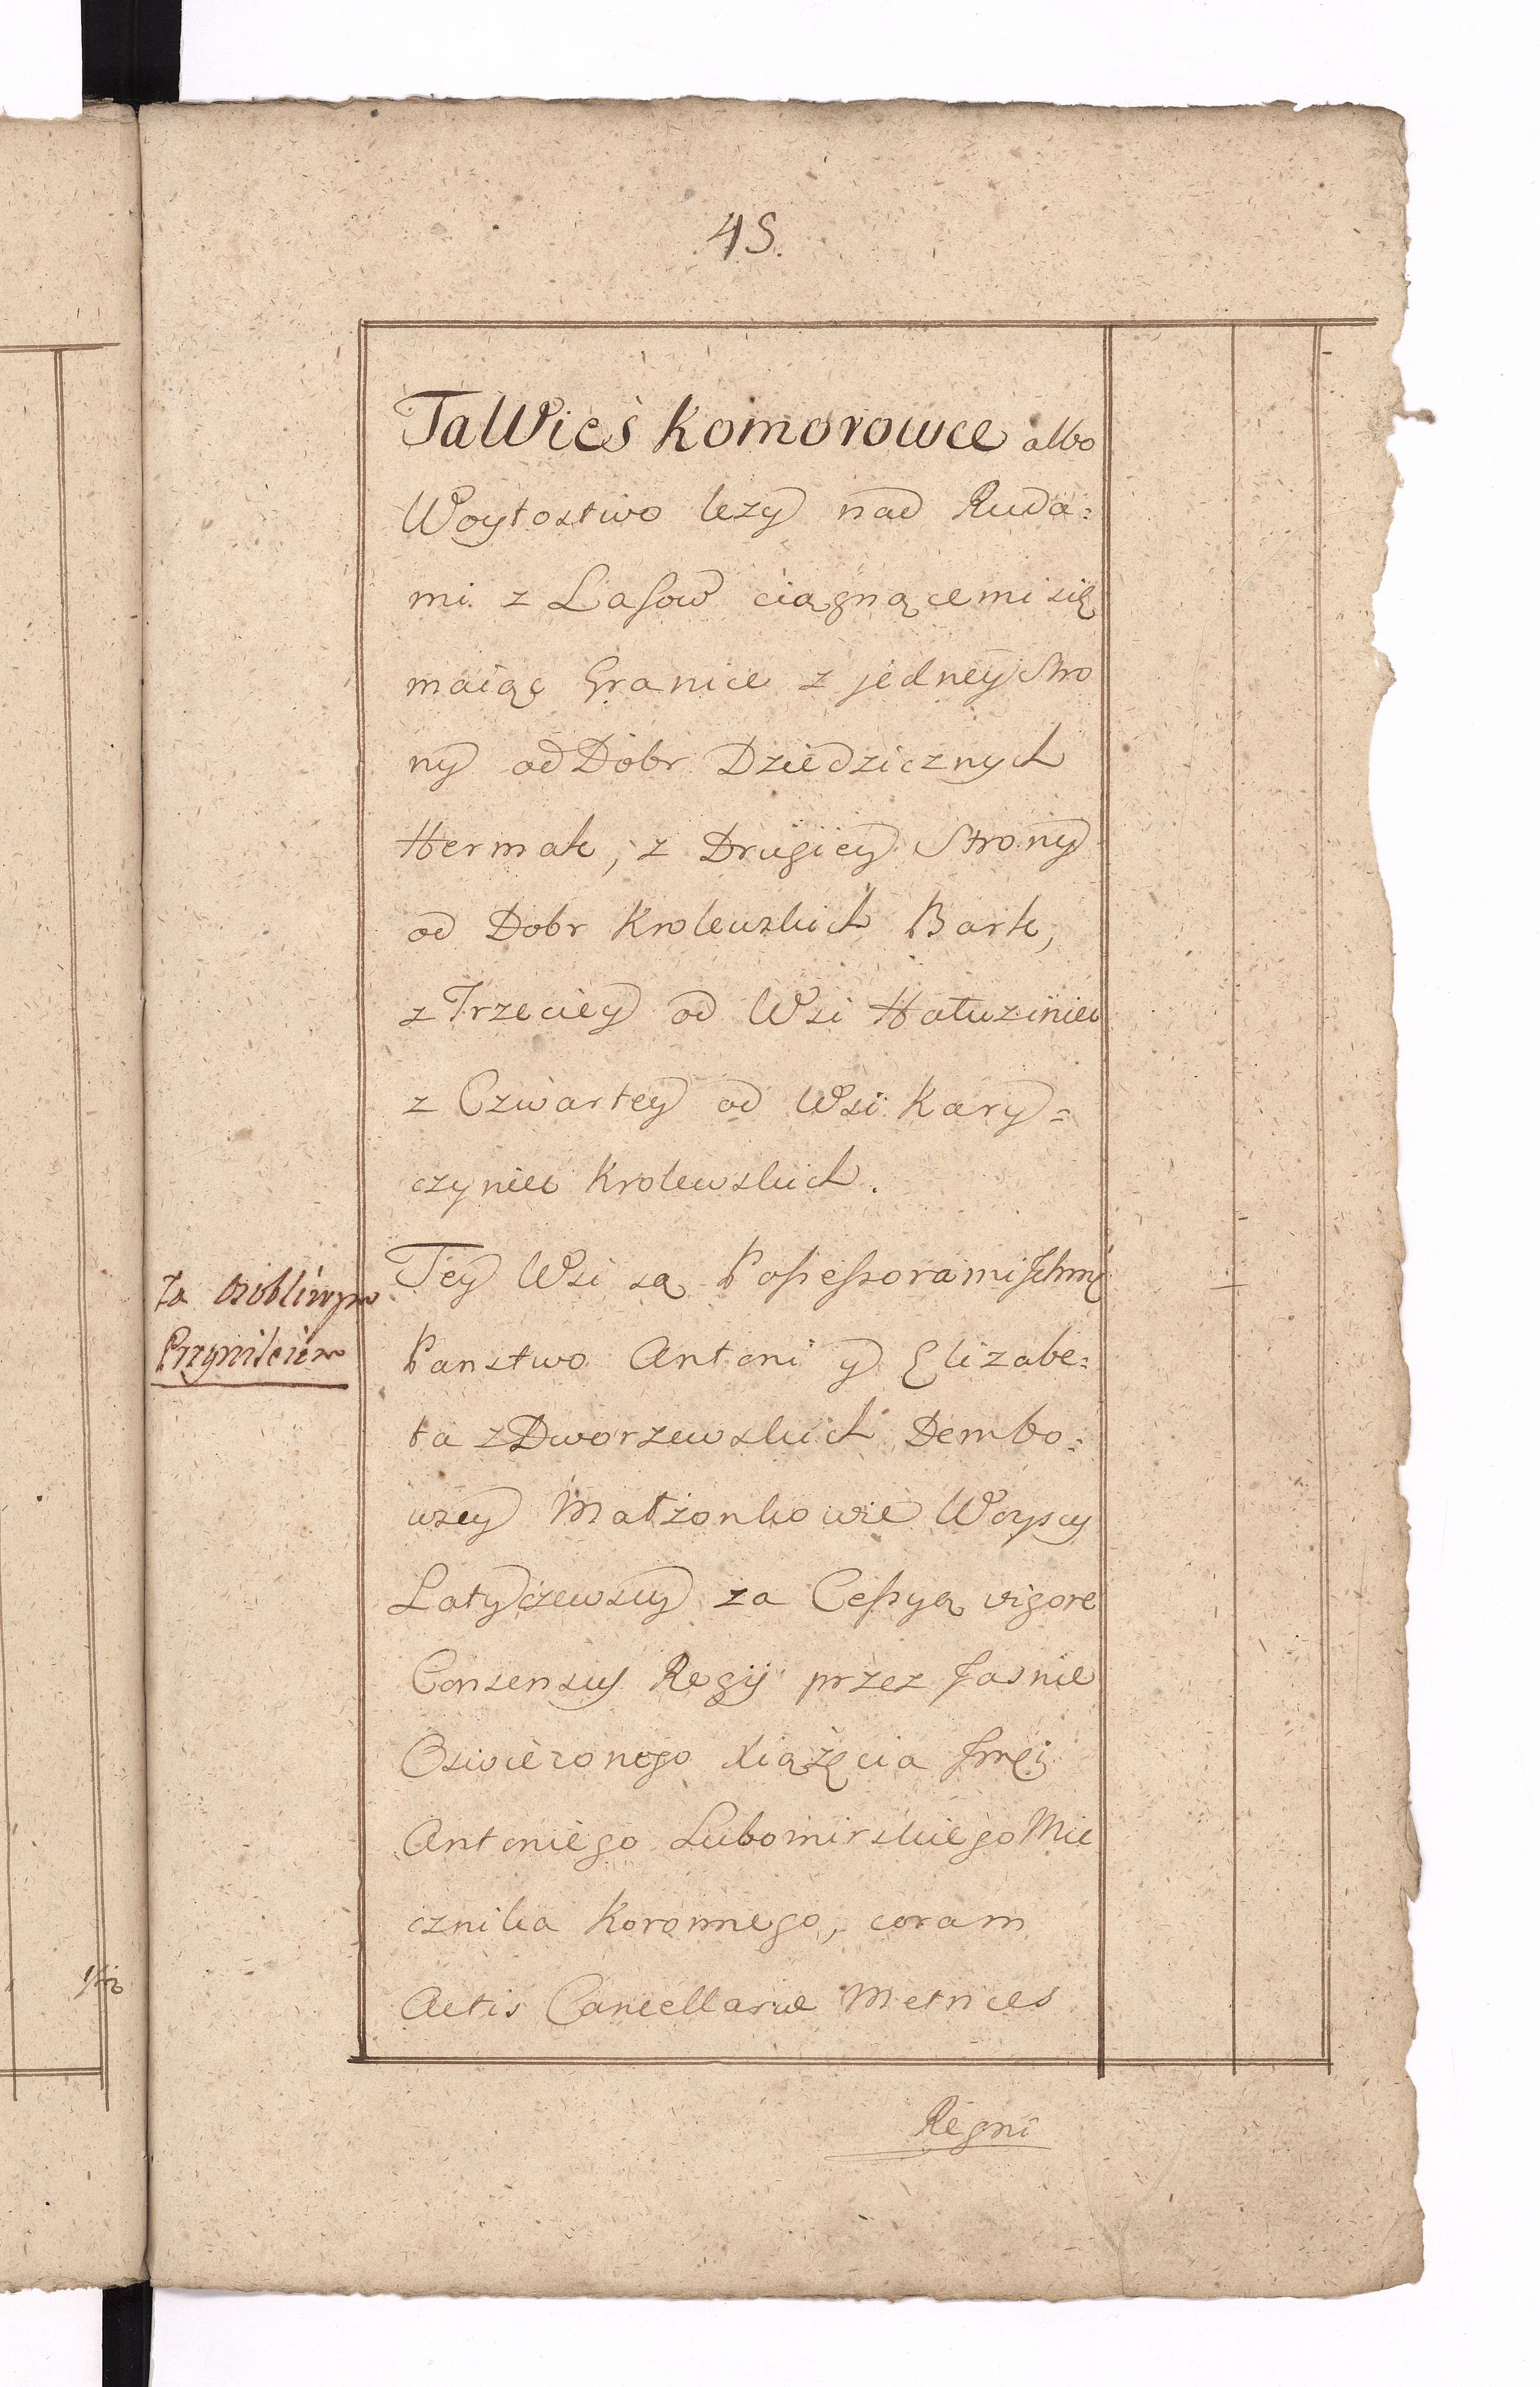 45.
Ta Wieś Komorowce albo
Woytostwo lezy nad Ruda=
mi z Lasow ciągnącemi się
maiąc Granice z jedney Stro
ny od Dobr Dziedzicznych
Hermak, z Drugiey Strony
od Dobr Krolewskich Bark,
z Trzeciey od Wsi Hałuziniec
z Czwartey od Wsi Kary=
czyniec Krolewskich.
Tey Wsi są Possessorami Ichmć
Za osobliwym
Przywileiem
Panstwo Antoni y Elizabe=
ta z Dworzewskich Dembo=
wscy Małżonkowie Woyscy
Latyczewscy za Cessyą vigore
Consensus Regij przez Jasnie
Oswieconego Xiążęcia Jmci
Antoniego Lubomirskiego Mie
cznika Koronnego, coram
Actis Cancellariæ Metrices
Regni